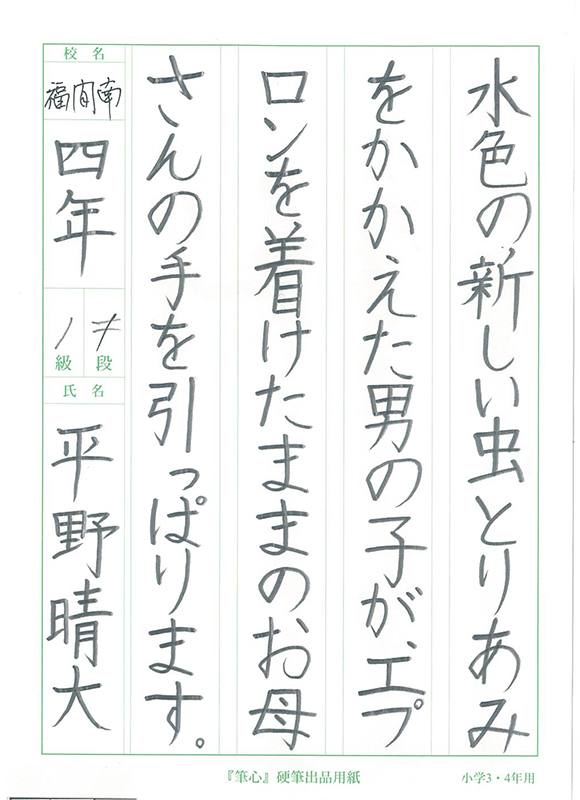 水色の新しい虫とりあみ
をかかえた男の子が、エプ
ロンを着けたままのお母
さんの手を引っぱります。
校名
福間南
四年
段
級
氏名
平野晴大
『筆心』硬筆出品用紙
小学3・4年用